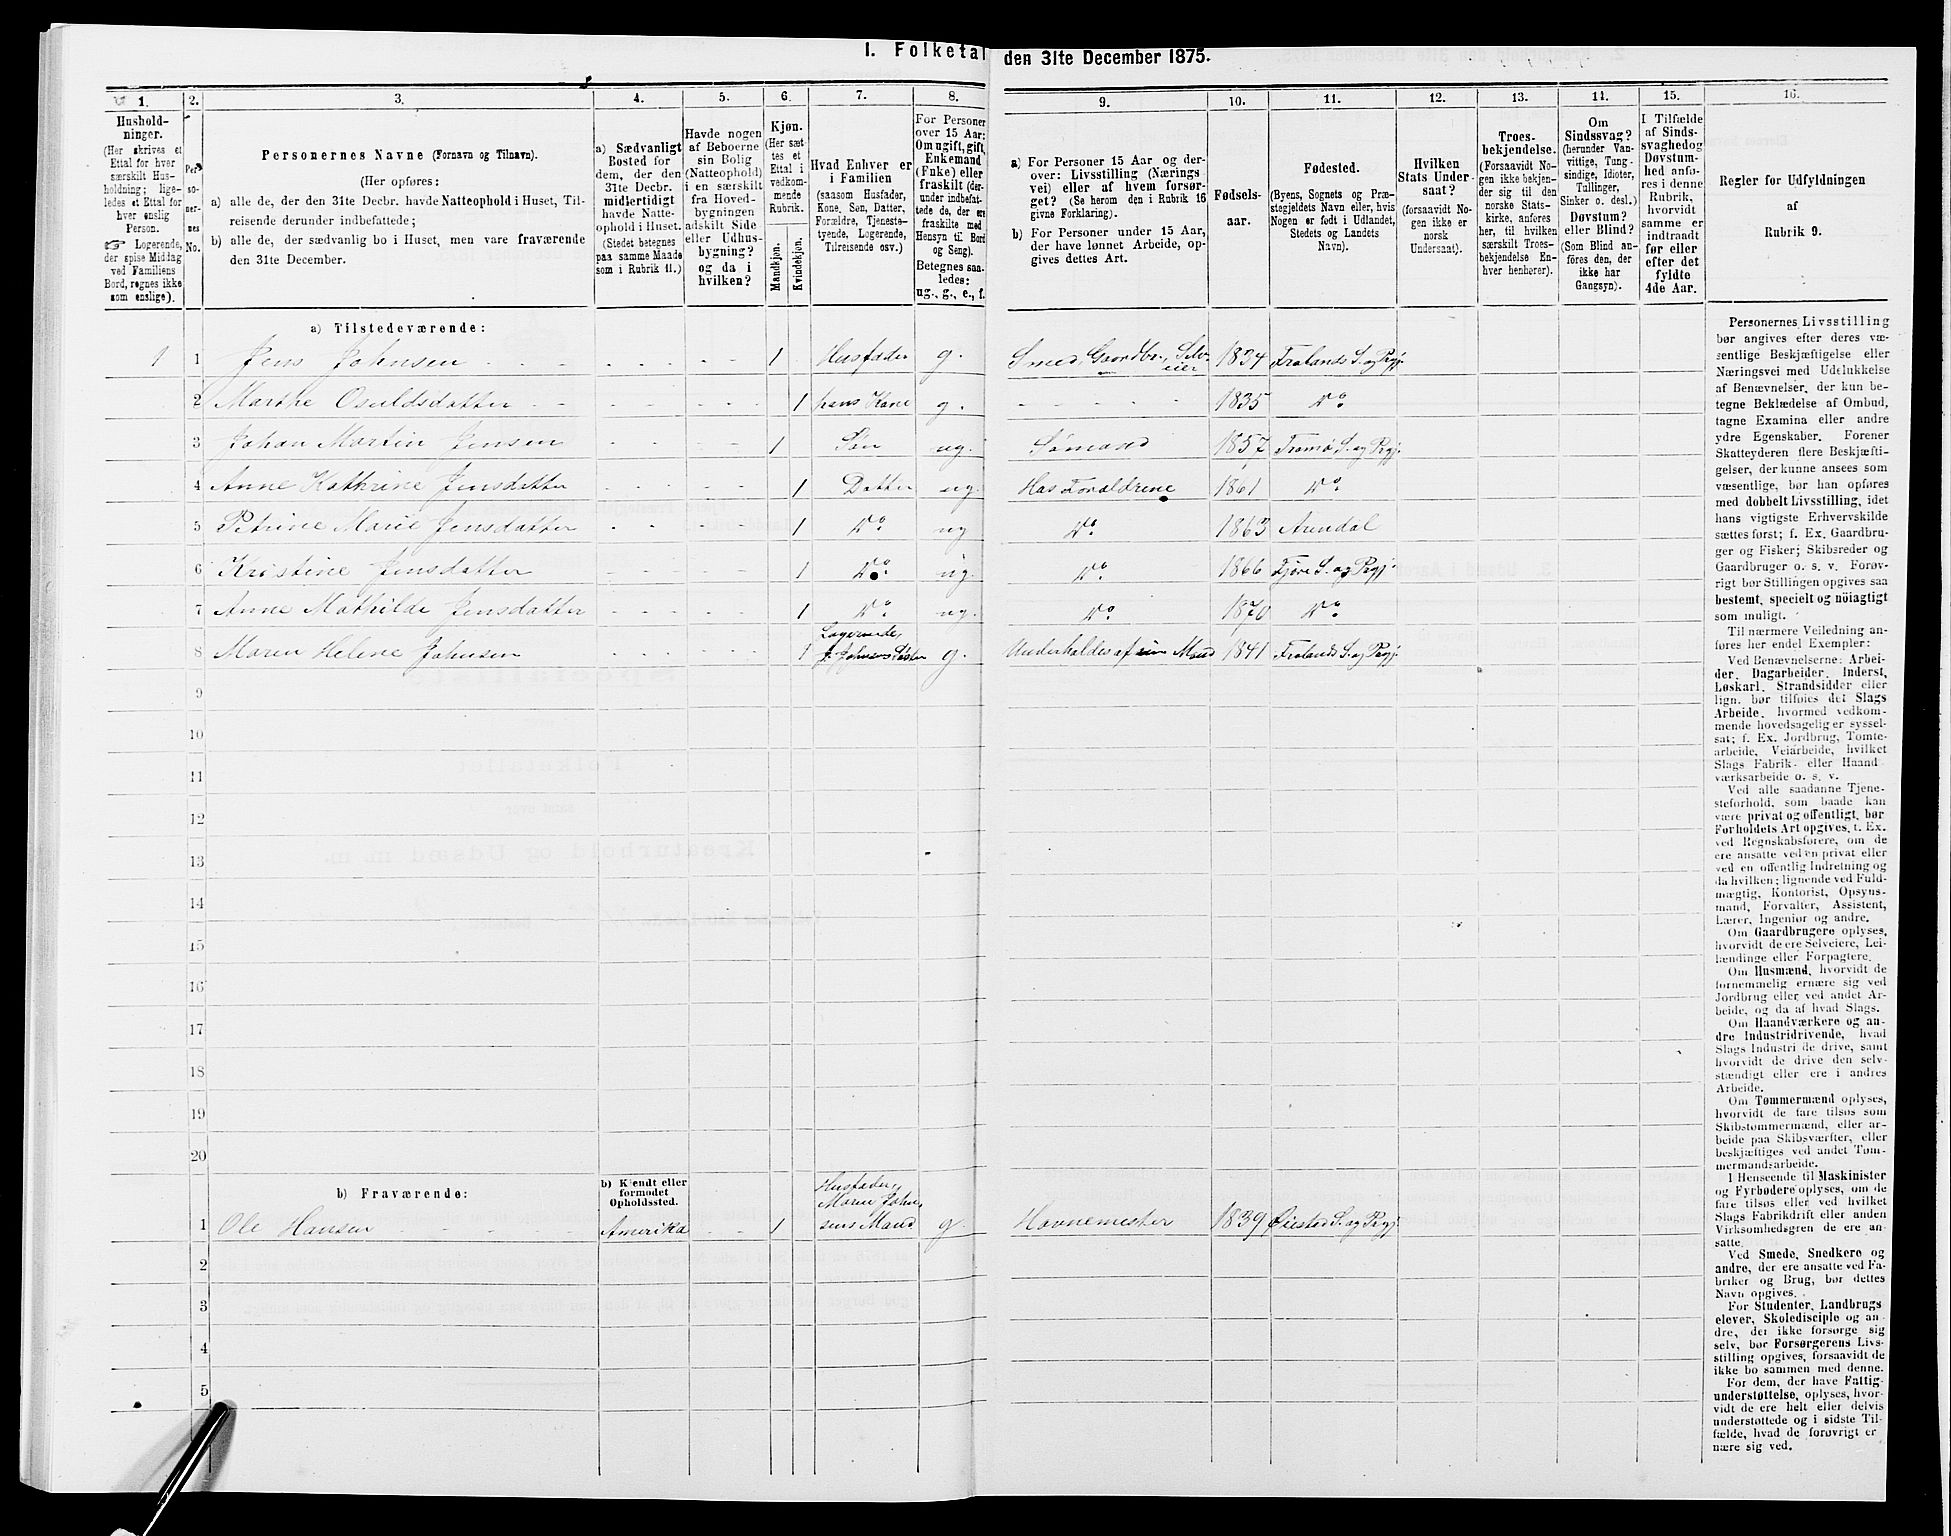 I. Folketal den 31te December 1875.
1. 2. 3. 4. 5. 6. 7. 8. 9. 10. 11. 12. 13. 14. 15. 16.
Hushold-
ninger.
(Her skrives et
Ettal for hver
særskilt Hus-
holdning; lige-
ledes et Ettal for
hver enslig
Person.
☞ Logerende,
der spise Middag
ved Familiens
Bord, regnes ikke
som enslige).
Per-
so-
ner-
nes
No.
Personernes Navne (Fornavn og Tilnavn).
(Her opføres:
a) alle de, der den 31te Decbr. havde Natteophold i Huset, Til-
reisende derunder indbefattede;
b) alle de, der sædvanlig bo i Huset, men vare fraværende
den 31te December.
a) Sædvanligt
Bosted for
dem, der den
31te Decbr.
midlertidigt
havde Natte-
ophold i Huset.
(Stedet betegnes
paa samme Maade
som i Rubrik 11.)
Havde nogen
af Beboerne
sin Bolig
(Natteophold)
i en særskilt
fra Hoved-
bygningen
adskilt Side
eller Udhus-
bygning?
og da i
hvilken?
Kjøn.
(Her sæt-
tes et
Ettal i
vedkom-
mende
Rubrik.
Mandkjøn.
Kvindekjøn.
Hvad Enhver er
i Familien
(saasom Husfader,
Kone, Søn, Datter,
Forældre, Tjeneste-
tyende, Logerende,
Tilreisende osv.)
For Personer
over 15 Aar:
Om ugift, gift,
Enkemand
(Enke) eller
fraskilt (der-
under indbefat-
tede de, der ere
fraskilte med
Hensyn til Bord
og Seng).
Betegnes saa-
ledes:
ug., g., e., f.
a) For Personer 15 Aar og der-
over: Livsstilling (Nærings
vei) eller af hvem forsør-
get? (Se herom den i Rubrik 16
givne Forklaring).
b) For Personer under 15 Aar,
der have lønnet Arbeide, op-
gives dettes Art.
Fødsels-
aar.
Fødested.
(Byens, Sognets og Præ-
stegjeldets Navn eller, hvis
Nogen er født i Udlandet,
Stedets og Landets
Navn).
Hvilken
Stats Under-
saat?
(forsaavidt No-
gen ikke er
norsk
Undersaat).
Troes-
bekjendelse.
(Forsaavidt No-
gen ikke bekjen-
der sig til den
norske Stats-
kirke, anføres
her, til hvilken
særskilt Troes-
bekjendelse En-
hver henhører).
Om
Sindssvag?
(herunder Van-
vittige, Tung-
sindige, Idioter,
Tullinger,
Sinker o. desl.)
Døvstum?
eller Blind?
(Som Blind an-
føres den, der
ikke har
Gangsyn).
I Tilfælde
af Sinds-
svaghed og
Døvstum-
hed anfø-
res i denne
Rubrik,
hvorvidt
samme er
indtraadt
før eller
efter det
fyldte
4de Aar.
Regler for Udfyldningen
af
Rubrik 9.
a) Tilstedeværende:
1 1 Jens Johnsen 1 Husfader g. Smed, Gaardbr., Selv-
eier 1834 Frolands S. og Prgj.
2 Marthe Osuldsdatter 1 hans Kone g. 1835 Do
3 Johan Martin Jensen 1 Søn ug. Sømand 1857 Tromø S. og Prgj.
4 Anne Kathrine Jensdatter 1 Datter ug. Hos Forældrene 1861 Do
5 Petrine Marie Jensdatter 1 Do ug Do 1863 Arendal
6 Kristine Jensdatter 1 Do ug. Do 1866 Fjære S. og Prgj.
7 Anne Mathilde Jensdatter 1 Do ug. Do 1870 Do
8 Maren Helene Johnsen 1 Logerende,
J. Johnsens Søster g. Underholdes af sin Mand 1841 Frolands S. og Prgj.
9
10
11
12
13
14
15
16
17
18
19
20
b) Fraværende:
b) Kjendt eller
formodet
Opholdssted.
1 Ole Hansen Amerika 1 Husfader,
Maren John-
sens Mand g. Havnemester 1839 Øiested S. og Prgj.
2
3
4
5
Personernes Livsstilling
bør angives efter deres væ-
sentlige Beskjæftigelse eller
Næringsvei med Udelukkelse
af Benævnelser, der kun be-
tegne Beklædelse af Ombud,
tagne Examina eller andre
ydre Egenskaber. Forener
Skatteyderen flere Beskjæfti-
gelser, der kunne ansees som
væsentlige, bør han opføres
med dobbelt Livsstilling, idet
hans vigtigste Erhvervskilde
sættes først; f. Ex. Gaardbru-
ger og Fisker; Skibsreder og
Gaardbruger o. s. v. Forøv-
rigt bør Stillingen opgives saa
bestemt, specielt og nöiagtigt
som muligt.
Til nærmere Veiledning an-
føres her endel Exempler:
Ved Benævnelserne: Arbei-
der, Dagarbeider, Inderst,
Løskarl, Strandsidder eller
lign. bør tilføies det Slags
Arbeide, hvormed vedkom-
mende hovedsagelig er syssel-
sat; f. Ex. Jordbrug, Tomte-
arbeide, Veiarbeide, hvilket
Slags Fabrik- eller Haand
værksarbeide o. s. v.
Ved alle saadanne Tjene-
steforhold, som baade kan
være privat og offentligt, bør
Forholdets Art opgives, t. Ex.
ved Regnskabsførere, om de
ere ansatte ved en privat eller
ved en offentlig Indretning og
da hvilken; lignende ved Fuld-
mægtig, Kontorist, Opsyns-
mand, Forvalter, Assistent,
Lærer, Ingeniør og andre.
Om Gaardbrugere oplyses,
hvorvidt de ere Selveiere, Lei-
lændinge eller Forpagtere.
Om Husmænd, hvorvidt de
fornemmelig ernære sig ved
Jordbrug eller ved andet Ar-
beide, og da af hvad Slags.
Om Haandværkere og an-
dre Industridrivende, hvad
Slags Industri de drive, samt
hvorvidt de drive den selv-
stændigt eller ere i andres
Arbeide.
Om Tømmermænd oplyses,
hvorvidt de fare tilsøs som
Skibstømmermænd, eller ar-
beide paa Skibsværfter, eller
beskjæftiges ved andet Tøm-
mermandsarbeide.
I Henseende til Maskinister
og Fyrbødere oplyses, om de
fare tilsøs eller ved hvilket
Slags Fabrikdrift eller anden
Virksomhedsgren de ere an-
satte.
Ved Smede, Snedkere og
andre, der ere ansatte ved Fa-
briker og Brug, bør dettes
Navn opgives.
For Studenter, Landbrugs
elever, Skoledisciple og an-
dre, der ikke forsørge sig
selv, bør Forsørgerens Livs-
stilling opgives, forsaavidt de
ikke bo sammen med denne.
For dem, der have Fattig-
understøttelse, oplyses, hvor-
vidt de ere helt eller delvis
understøttede og i sidste Til-
fælde, hvad de forøvrigt er
nære sig ved.